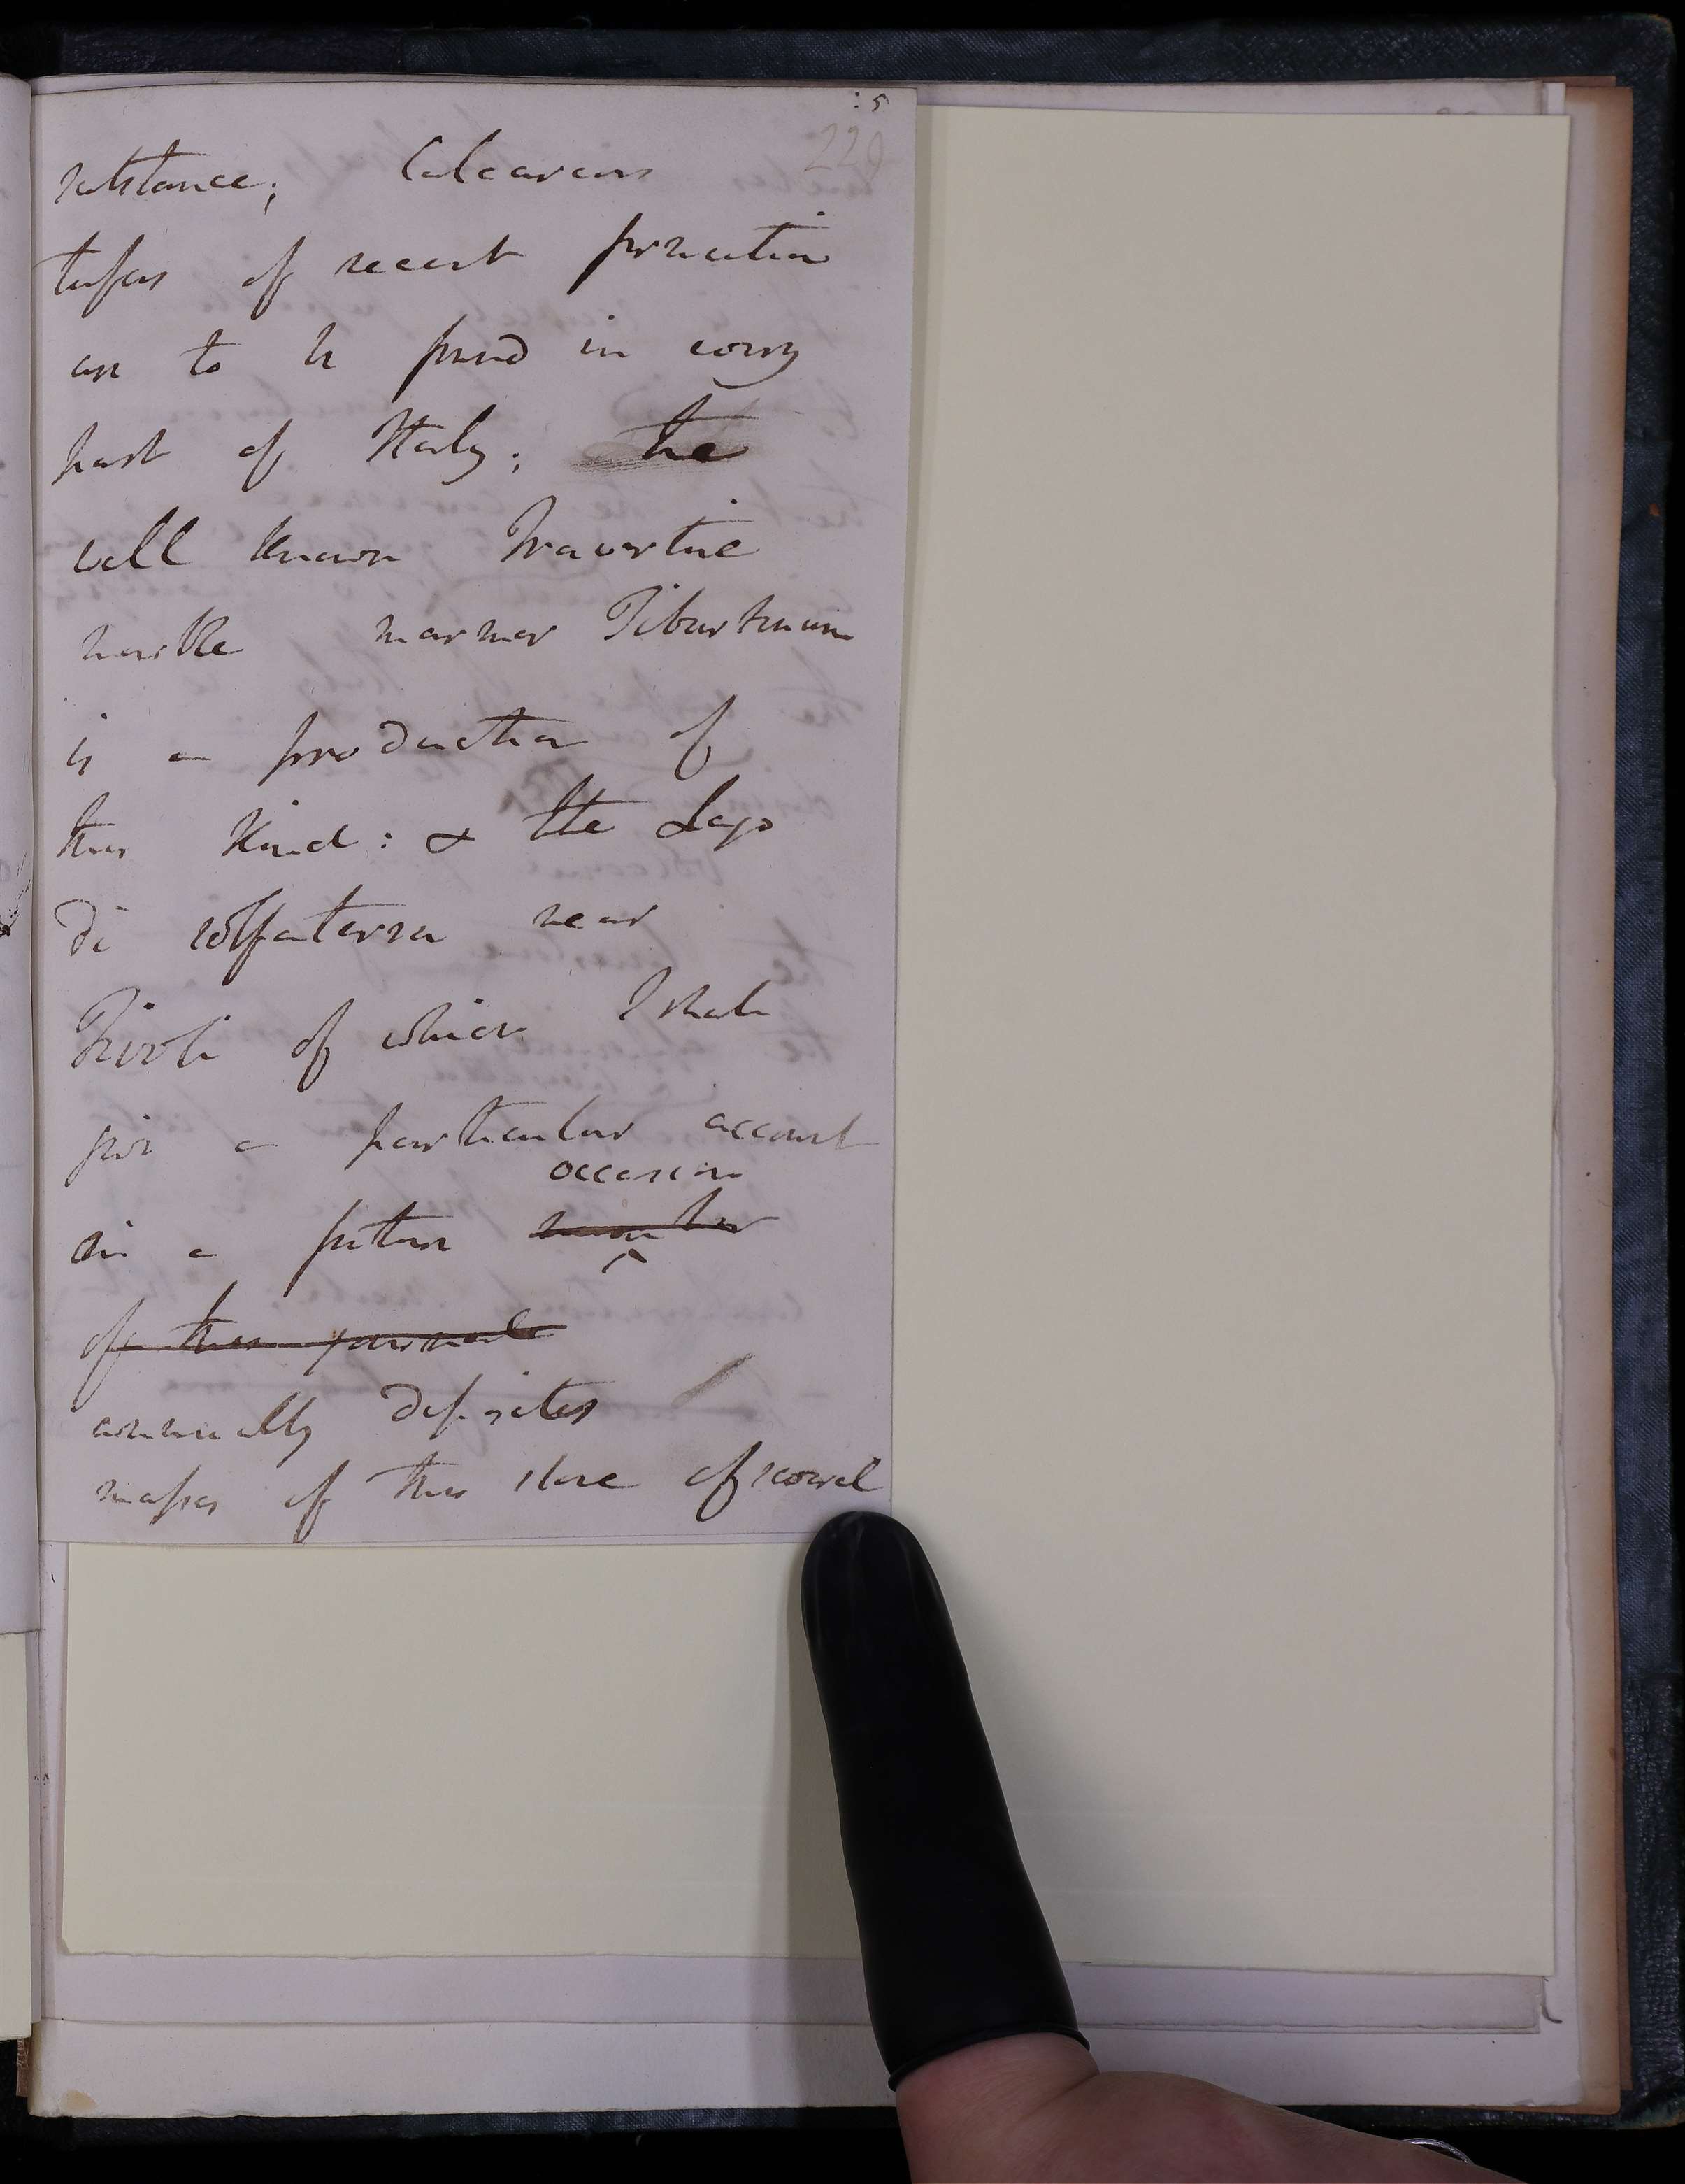 : 5
229
substance; Calcareous
tufas of recent formation
are to be found in every
part of Italy; the
well known Travertine
marble marmor Tiburtinum
is a production of
this kind: & the Lago
di solfaterra near
Tivoli of which I shall
give a particular account
occasion
in a future number
of this journal
annually deposites
masses of this stone of several